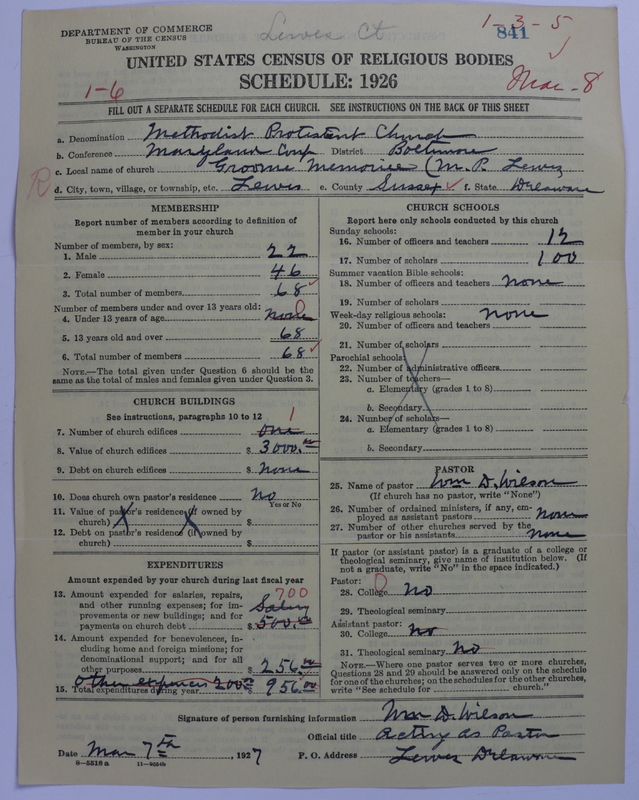 DEPARTMENT OF COMMERCE
BUREAU OF THE CENSUS
WASHINGTON
Lewes Ct
1-3-5
841
UNITED STATES CENSUS OF RELIGIOUS BODIES
SCHEDULE: 1926
1-6
Mar-8
FILL OUT A SEPARATE SCHEDULE FOR EACH CHURCH. SEE INSTRUCTIONS ON THE BACK OF THIS SHEET
a. Denomination Methodist Protestent Church
b. Conference Maryland Conf District Boltimore
c. Local name of church Groome (M. P. Lewes
R
d. City, town, village, or township, etc. Lewes e. County Sussex f. State Delaware
MEMBERSHIP
Report number of members according to definition of
member in your church
Number of members, by sex:
1. Male 22
2. Female 46
3. Total number of members 68
Number of members under and over 13 years old:
4. Under 13 years of age none 0
5. 13 years old and over 68
6. Total number of members 68
NOTE.—The total given under Question 6 should be
the same as the total of males and females given under Question 3.
CHURCH BUILDINGS
See instructions, paragraphs 10 to 12
7. Number of church edifices one 1
8. Value of church edifices $ 3000.00
9. Debt on church edifices $ none
10. Does church own pastor's residence No
Yes or No
11. Value of pastor's residence (if owned by
church) X X $
12. Debt on pastor's residence (if owned by
church) $
EXPENDITURES
Amount expended by your church during last fiscal year
13. Amount expended for salaries, repairs,
and other running expenses; for im-
provements or new buildings; and for
payments on church debt
700
Salary
$ 500.00
14. Amount expended for benevolences, in-
cluding home and foreign missions; for
denominational support; and for all
other purposes $ 256.00
Other expences 200.00
15. Total expenditures during year $ 956.00
CHURCH SCHOOLS
Report here only schools conducted by this church
Sunday schools:
16. Number of officers and teachers 12
17. Number of scholars 100
Summer vacation Bible schools:
18. Number of officers and teachers none
19. Number of scholars
Week-day religious schools: none
20. Number of officers and teachers
21. Number of scholars
Parochial schools:
22. Number of administrative officers
23. Number of teachers—
a. Elementary (grades 1 to 8)
b. Secondary
24. Number of scholars—
a. Elementary (grades 1 to 8)
b. Secondary
PASTOR
25. Name of pastor Wm D. Wilson
(If church has no pastor, write "None")
26. Number of ordained ministers, if any, em-
ployed as assistant pastors none
27. Number of other churches served by the
pastor or his assistants none
If pastor (or assistant pastor) is a graduate of a college or
theological seminary, give name of institution below. (If
not a graduate, write "No" in the space indicated.)
Pastor:
28. College No
29. Theological seminary
Assistant pastor:
30. College No
31. Theological seminary No
NOTE.—Where one pastor serves two or more churches,
Questions 28 and 29 should be answered only on the schedule
for one of the churches; on the schedules for the other churches,
write "See schedule for church."
Signature of person furnishing information Wm D. Wilson
Official title Acting as Pastor
Date Mar 7th, 1927 P. O. Address Lewes Delaware
8—5519 a 11—9564b